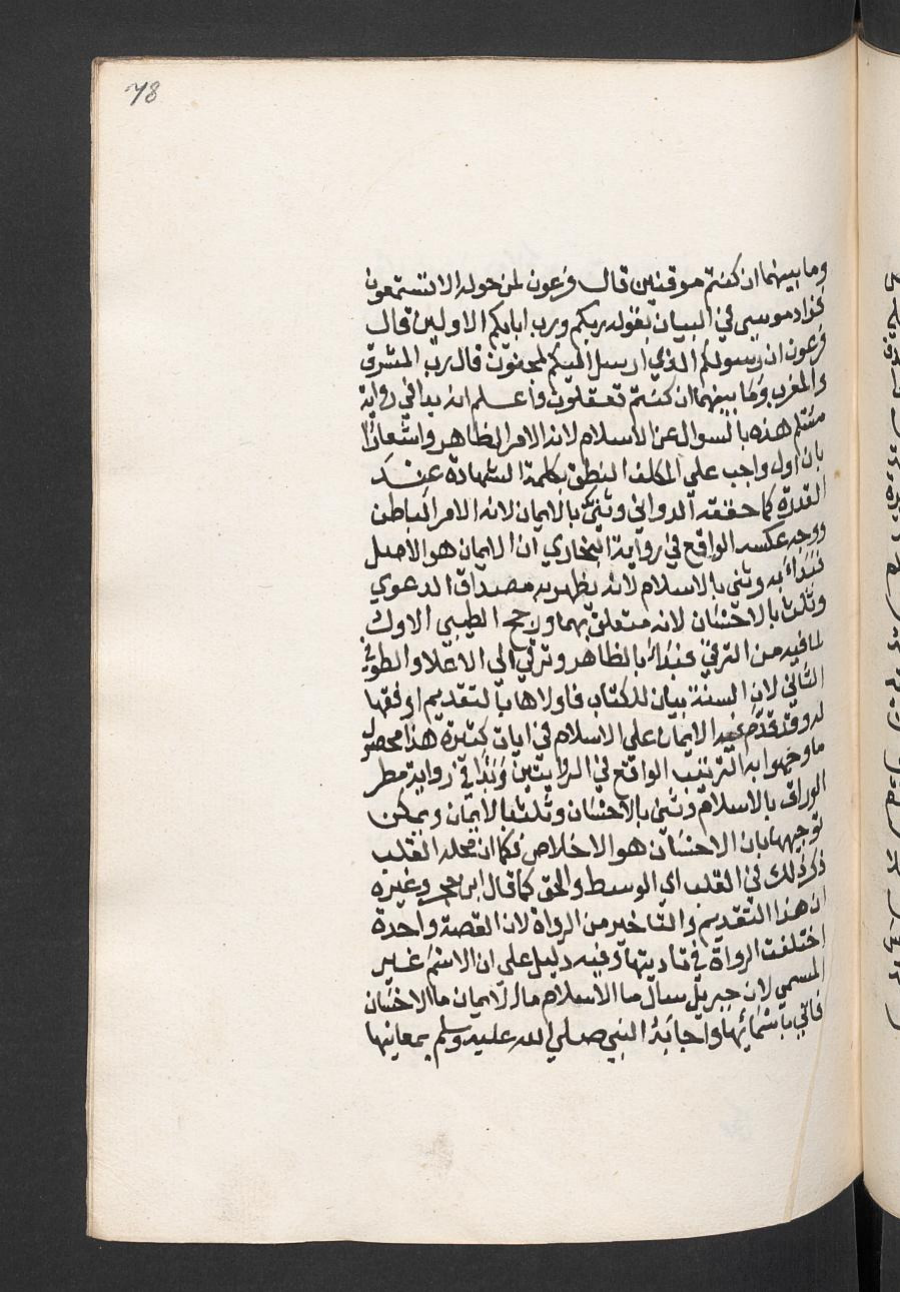 78
وما بينهما ان كنتم موقنين قال فرعون لمن حوله الا تستمعون
فزاد موسى في البيان بقوله ربكم ورب ابايكم الاولين قال
فرعون ان رسولكم الذي ارسل اليكم لمجنون قال رب المشرق
والمغرب وما بينهما ان كنتم تعقلون واعلم انه بدا في رواية
مسلم هذه بالسوال عن الاسلام لانه الامر الظاهر واشعارا
بان اول واجب علي المكلف النطق بكلمة الشهادة عند
القدرة كما حققه الدواني وثني بالايمان لانه الامر الباطن
ووجه عكسه الواقع في رواية البخاري ان الايمان هو الاصل
فبداء به وثني بالاسلام لانه يظهر به مصداق الدعوي
وثلث بالاحسان لانه متعلق بهما ورجح الطيبي الاول
لما فيه من الترقي فبداء بالظاهر وترقي الي الاعلا والطوفي
الثاني لان السنة بيان للكتاب فاولاها بالتقديم اوفقها
له وقد قدم فيه الايمان علي الاسلام في ايات كثيرة هذا محصول
ما وجهوا به الترتيب الواقع في الروايتين وبدا في رواية مطر
الوراق بالاسلام وثني بالاحسان وثلث بالايمان ويمكن
توجيهها بان الاحسان هو الاخلاص فكما ان محله القلب
ذكر ذلك في القلب اي الوسط والحق كما قال ابن حجر وغيره
ان هذا التقديم والتاخير من الرواة لان القصة واحدة
اختلفت الرواة في تاديتها وفيه دليل علي ان الاسم غير
المسمي لان جبريل سال ما الاسلام ما الايمان ما الاحسان
فاتي باسمائها واجابه النبي صلي الله عليه وسلم بمعانيها